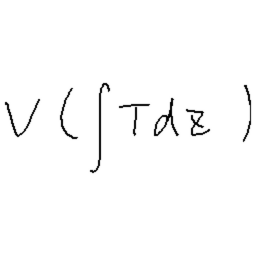 V ( ∫ T d z )